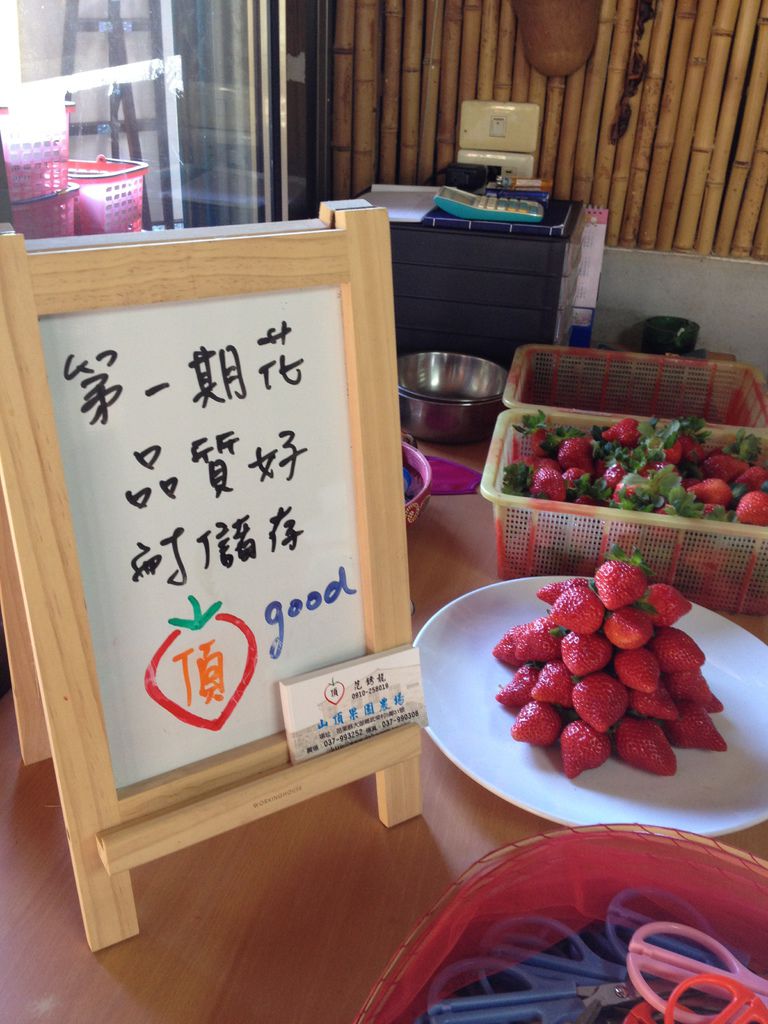 第一期花
品質好
耐儲存
good
頂
頂
范綉龍
0910-258018
山頂果園農場
037-993252
037-990308
WORKINGHOUSE